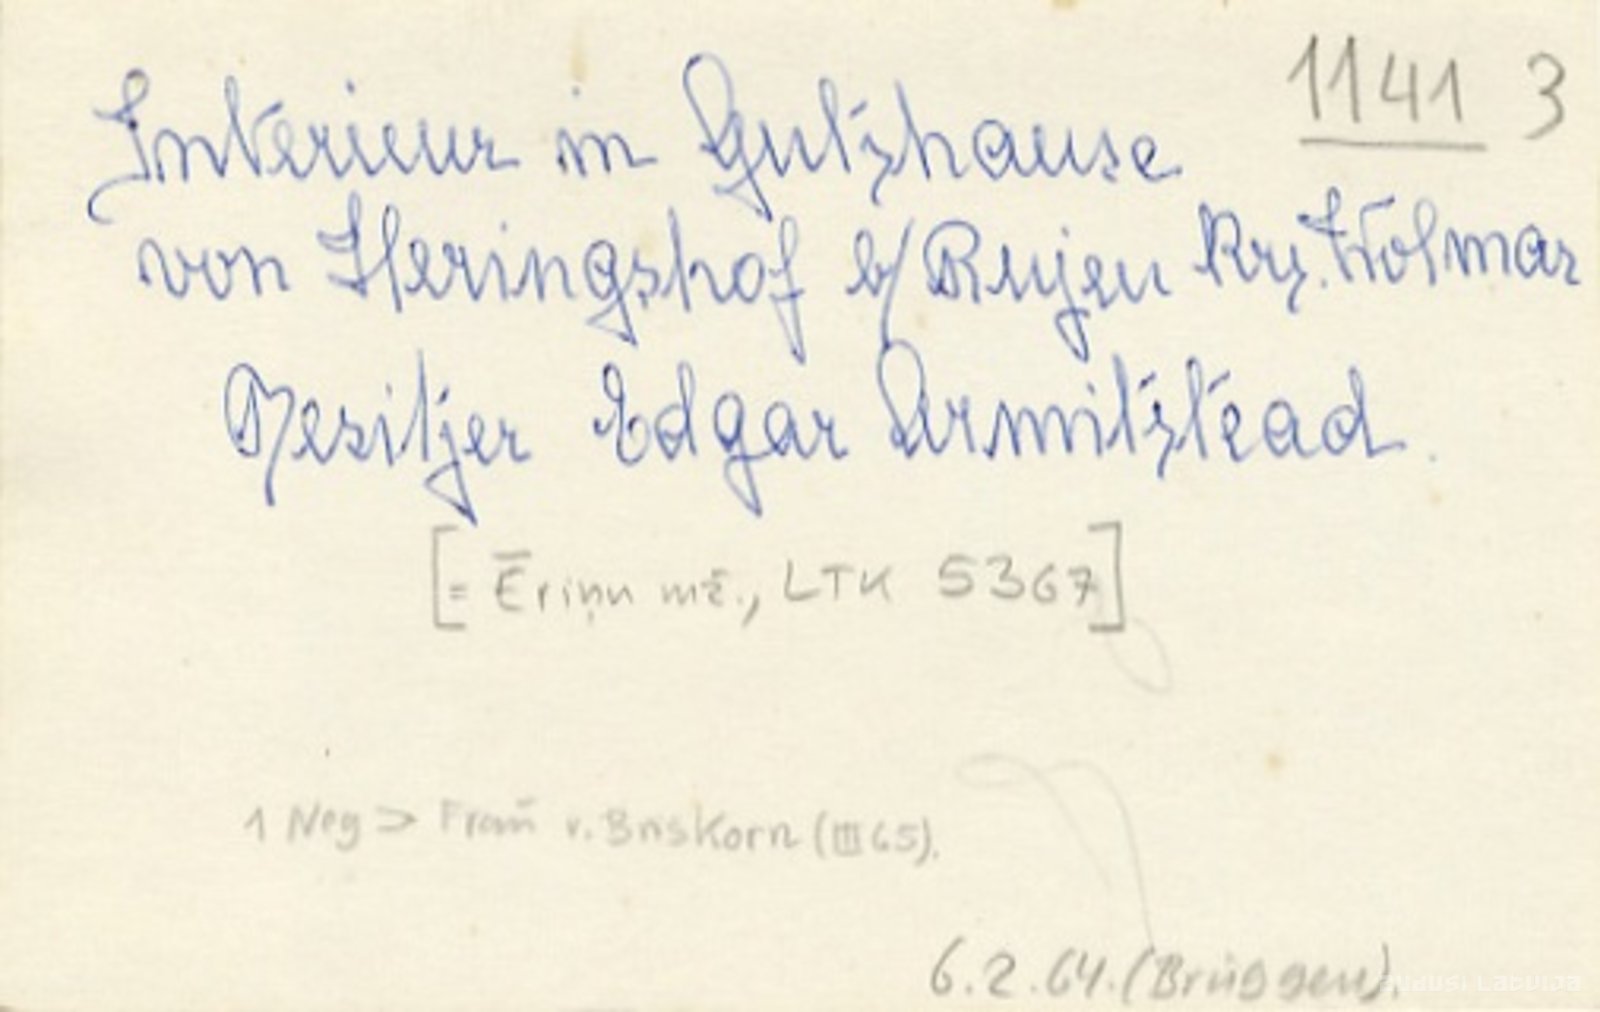 1141 3
Interieur in Gutshause
von Heringshof b/Rujen Krs. Wolmar
Besitzer Edgar Armitstead.
[= Ēriņu mž., LTK 5367]
1 Neg > Frau v. Briskorn (III 65).
6.2.64. (Brüggen).
zudusi Latvija